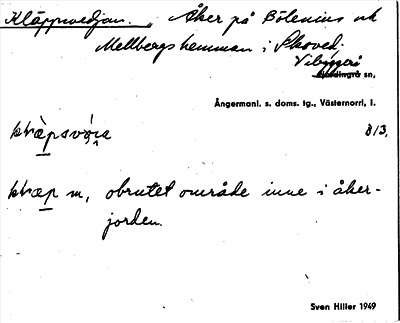 Kläppvedjan. Åker på Bölenius och
Mellbergs hemman i Skoved.
Vibyggerå
sn,
Ångermanl. s. doms. tg., Västernorrl, l.
813.
m, obrutet område inne i åker-
jorden.
Sven Hiller 1949